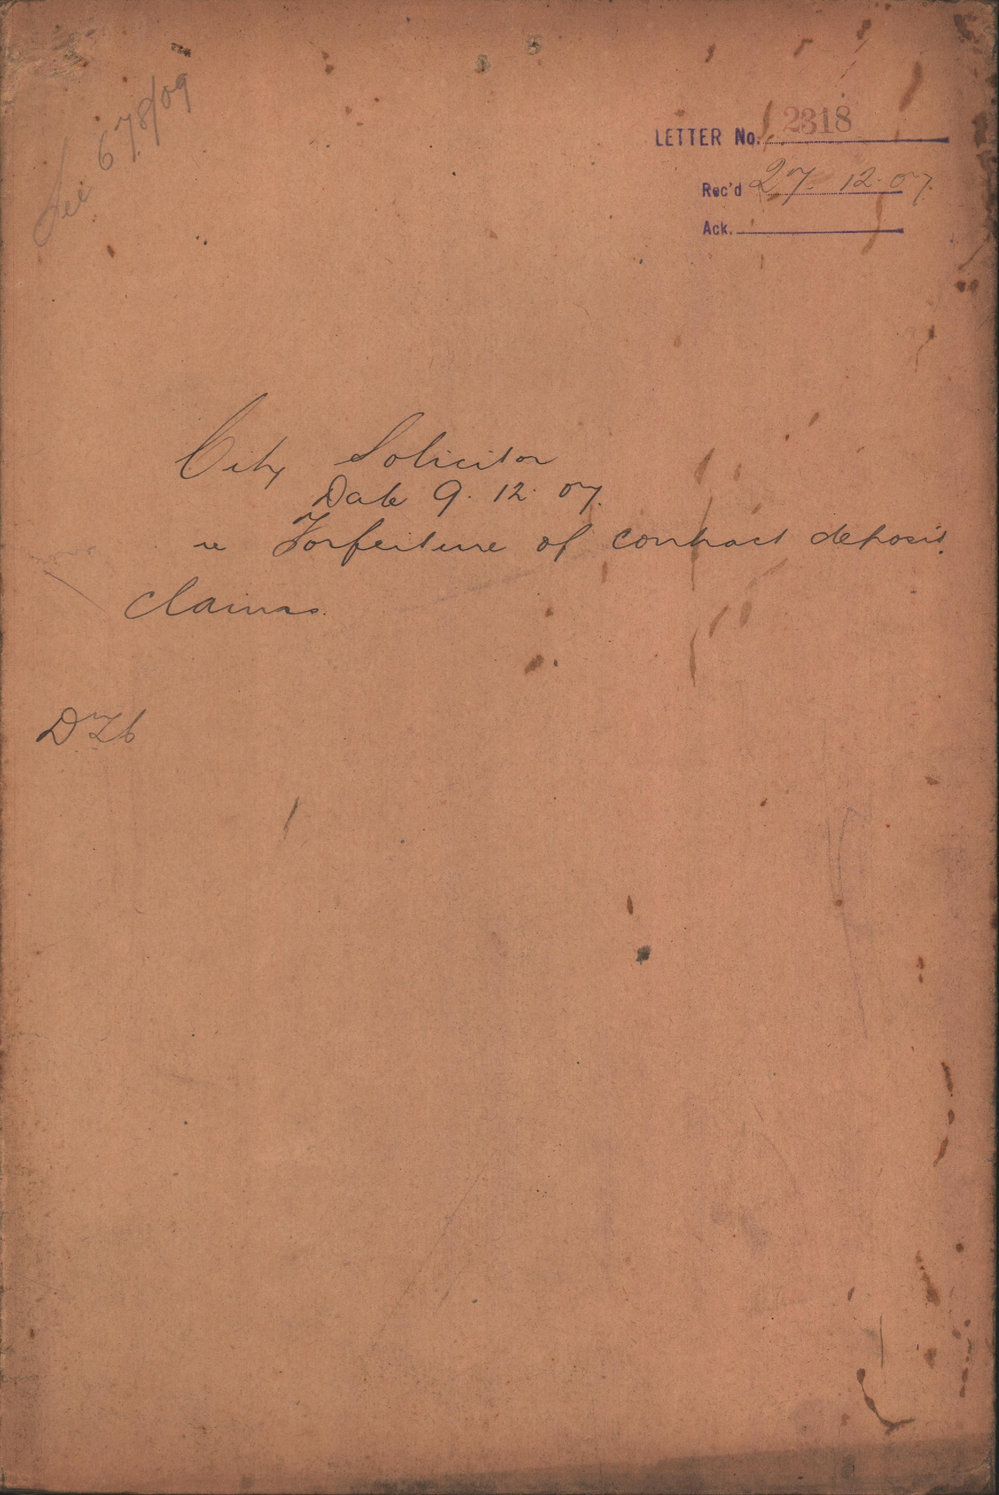 See 678/09
LETTER No. 2318
Rec'd 27.12.07.
Ack.
City Solicitor
Date 9.12.07.
re Forfeiture of contract deposit.
Claims.